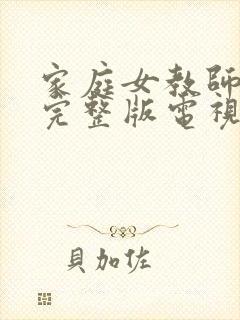 家庭女教師
完整版電視
貝加佐